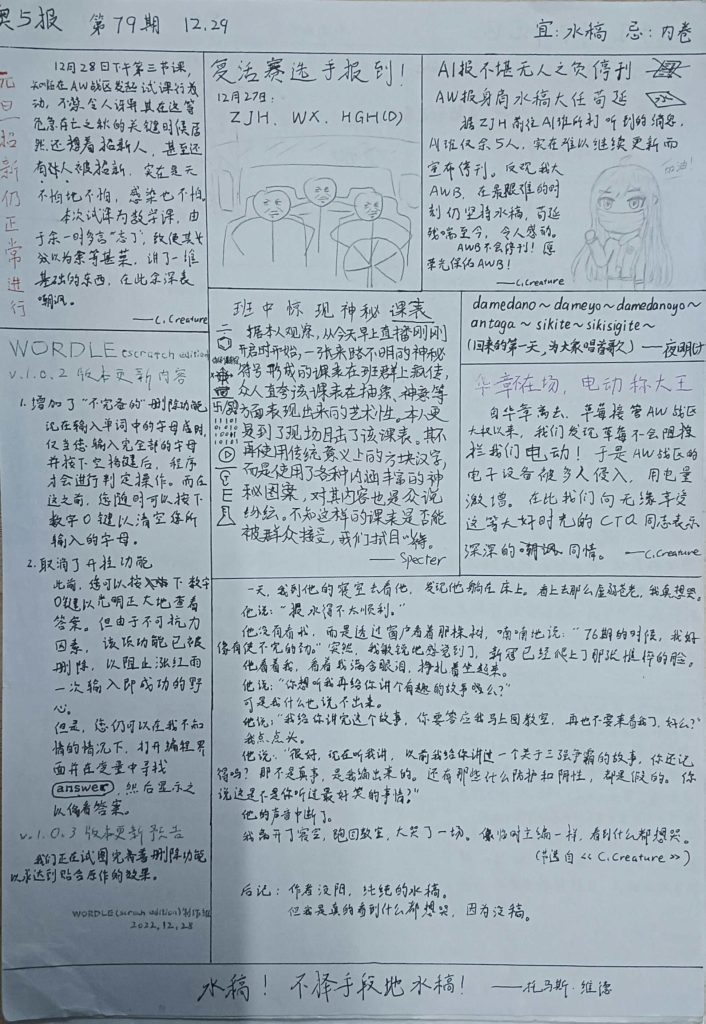 奥5报 第79期 12.29
宜：水稿 忌：内卷
元旦招新仍正常进行
12月28日下午第三节课，
在AW战区发起试课行
动，不禁令人误解其在这等
危急存亡之秋的关键时候居
然还想着招新人，甚至还
有好人被招新，实在是天
不怕地不怕，感染也不怕。
本次试课为数学课，由
于余一时多言"忘了"，致使其
以为余等甚菜，讲了一堆
基础的东西，在此余深表
嘲讽。
——C.Creature
复活赛选手报到！
12月27日：
ZJH、WX、HGH(D)
AI报不堪无人之负停刊
AW报身肩水稿大任苟延
据ZJH前往AI班所打听到的消息，
AI班仅余5人，实在难以继续更新而
宣布停刊。反观我大
AWB，在最艰难的时
刻仍坚持水稿，苟延
残喘至今，令人感动。
AWB不会停刊！愿
荣光保佑AWB！
——C.Creature
加油！
WORDLE (scratch edition)
v.1.0.2 版本更新内容
1. 增加了"不完备的"删除功能
现在输入单词中的字母后时，
仅当您输入完全部的字母
并按下空格键后，程序
才会进行判定操作。而在
这之前，您随时可以按下
数字0键以清空您所
输入的字母。
2. 取消了开挂功能
此前，您可以按下数字
0键以光明正大地查看
答案。但由于不可抗力
因素，该项功能已被
删除，以阻止涨红雨
一次输入即成功的野
心。
但是，您仍可以在我不知
情的情况下，打开编程界
面并在变量中寻找
answer，然后显示之
以偷看答案。
v.1.0.3 版本更新预告
我们正在试图完善着删除功能
以求达到贴合原作的效果。
WORDLE (scratch edition) 制作组
2022.12.28
班中惊现神秘课表
据本人观察，从今天早上直播刚刚
开启时开始，一张来路不明的神秘
符号形成的课表在班群上散布，
众人直夸该课表在抽象、神秘等
方面表现出来的艺术性。本人更
是到了现场目击了该课表。其不
再使用传统意义上的方块汉字，
而是使用了各种内涵丰富的神
秘图案，对其内容也是众说
纷纭。不知这样的课表是否能
被群众接受，我们拭目以待。
——Specter
damedano～dameyo～damedanoyo～
antaga～sikite～sikisigite～
(回来的第一天，为大家唱首歌) ——夜明け
华章在场，电动称大王
自华章离去，草莓接管AW战区
大权以来，我们发现草莓不会阻挠
拦我们电动！于是AW战区的
电子设备被多人侵入，用电量
激增。在此我们向无缘享受
这等大好时光的CTQ同志表示
深深的嘲讽同情。 ——C.Creature
一天，我到他的寝室去看他，发现他躺在床上。看上去那么虚弱苍老，我真想哭。
他说："最水得不太顺利。"
他没有看我，而是透过窗户看着那棵树，喃喃地说："76期的时候，我好
像有使不完的劲。"突然，我敏锐地感觉到了，新冠已经爬上了那张憔悴的脸。
他看着我，看着我满含眼泪，挣扎着坐起来。
他说："你想听我再给你讲个有趣的故事吗？"
可是我什么也说不出来。
他说："我给你讲完这个故事，你要答应我马上回教室，再也不要来看我了，好么？"
我点点头。
他说："很好，现在听我讲，以前我给你讲过一个关于三强争霸的故事，你还记
得吗？那不是真事，是我编出来的。还有那些什么防护和阴性，都是假的。你
说这是不是你听过最好笑的事情？"
他的声音中断了。
我离开了寝室，跑回教室，大笑了一场。像临时主编一样，看到什么都想哭。
(节选自《C.Creature》)
后记：作者没阳，纯纯的水稿。
但我是真的看到什么都想哭，因为没稿。
水稿！不择手段地水稿！ ——托马斯·维德